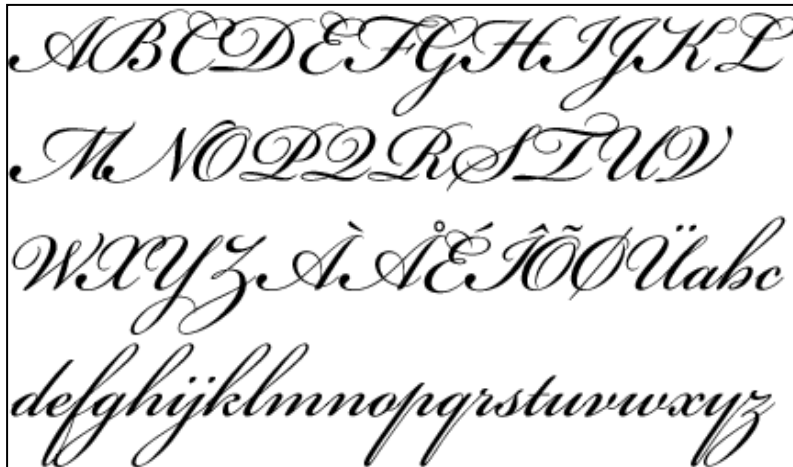 ABCDEFGHIJKL
MNOPQRSTUV
WXYZÀÅÉÎÕØÜabc
defghijklmnopqrstuvwxyz